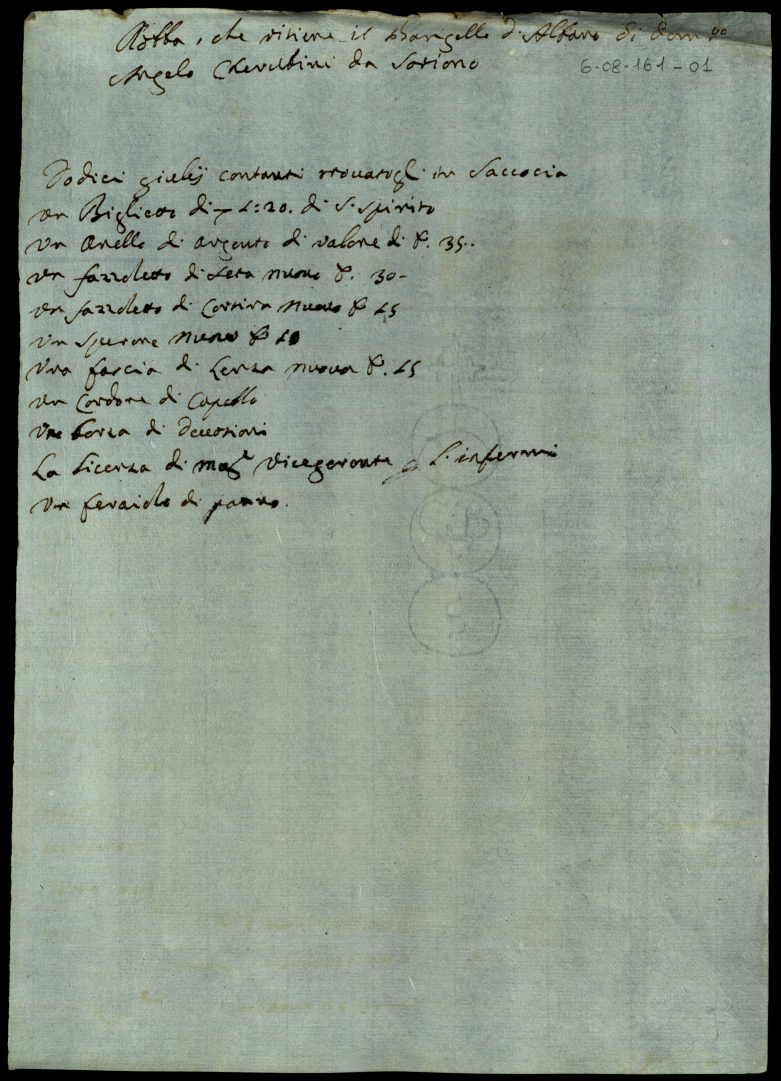 Robba, che ritiene il Bargello d'Albano di Dom.co
Angelo Cherubini da Soriano
6-08-161-01
Dodici giulij contanti trovatogli in Saccocia
un Biglietto di L:20. di S. Spirito
un Anello di Argento di valore di b. 35.
un fazzoletto di seta nuovo b. 30-
un fazzoletto di nuovo b 25
un Sperone nuovo b 20
una fascia di nuova b. 25
un Cordone di Capello
una borza di Devozioni
La Licenza di Vicegerente infermi
un feraiolo di panno.